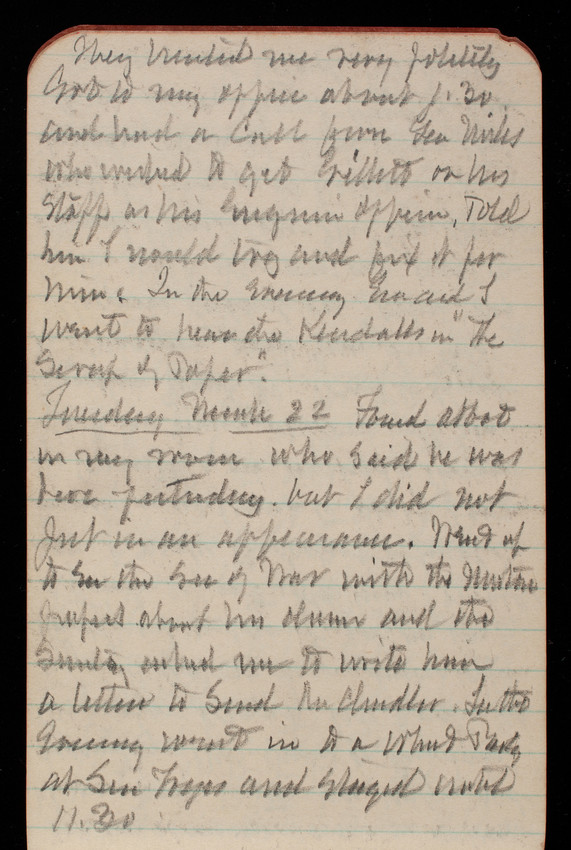 They treated me very politely
Got to my office about 1.30
and had a call from Gen Miles
who wished to get Gillett on his
Staff as his Engineer officer, Told
him I would try and fix it for
him. In the Evening Eva and I
went to hear the Kendalls in "the
Scrap of Paper".
Tuesday 22 Found Abbot
in my room who Said he was
here yesterday. but I did not
put in an appearance. Went up
to See the Sec of War with the
papers about him and the
asked me to write him
a letter to Send Mr Chandler. In the
Evening went in to a Whist Party
at and Stayed until
11.30